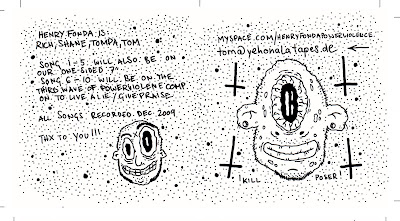 HENRY FONDA IS
RICH, SHANE, TOMPA, TOM
SONG 1-5 WILL ALSO BE ON
OUR ONE-SIDED 7"
SONG 6-10 WILL BE ON THE
THIRD WAVE OF POWERVIOLENCE COMP
ON TO LIVE A LIE / GIVE PRAISE
ALL SONGS RECORDED DEC. 2009
THX TO YOU!!!
MYSPACE.COM/HENRYFONDAPOWERVIOLENCE
tom@yehonalatapes.de
!KILL POSER!